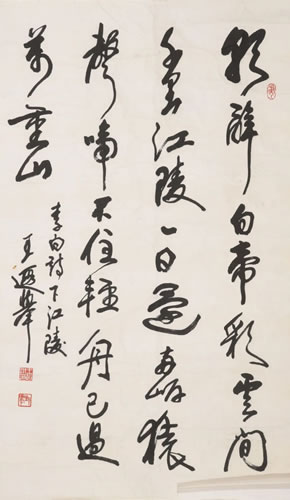 朝辭白帝彩雲間
千里江陵一日還兩岸猿
聲啼不住輕舟已過
萬重山
李白詩下江陵
王遐舉